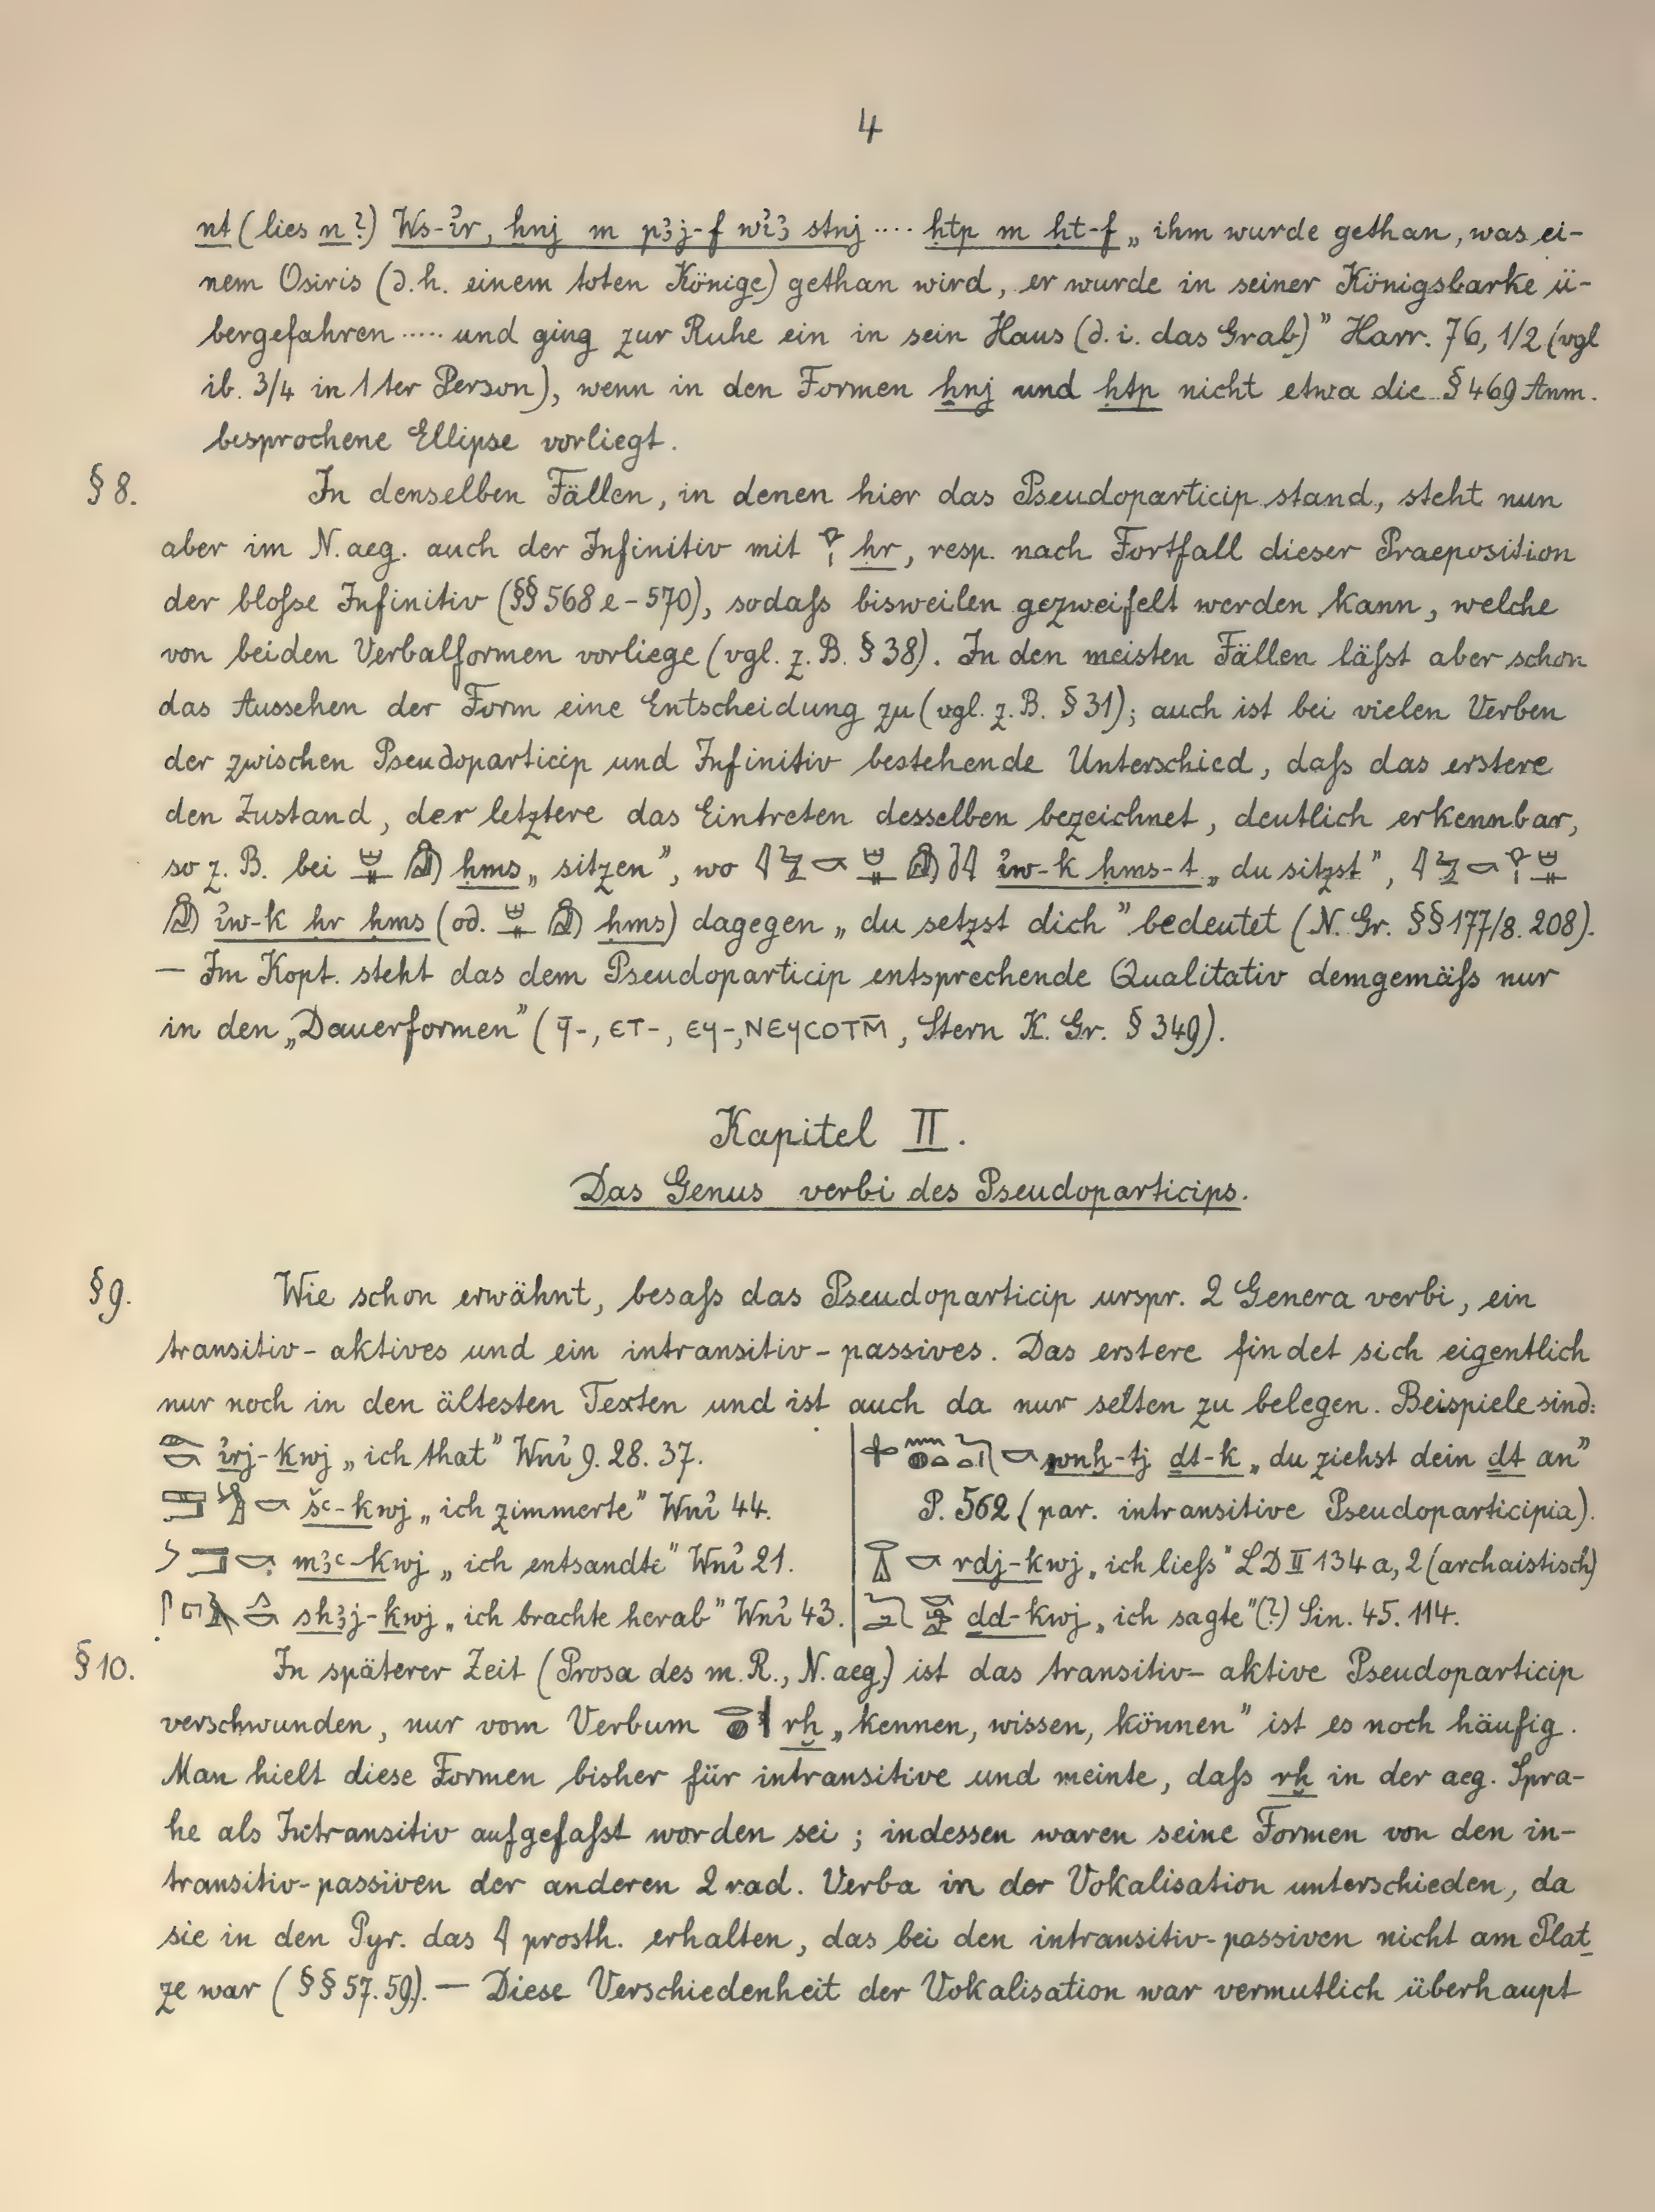 4
nt (lies n?) Ws-ỉr, ẖnj m pꜣj-f wỉꜣ stnj .... ḥtp m ḥt-f „ihm wurde gethan, was ei-
nem Osiris (d. h. einem toten Könige) gethan wird, er wurde in seiner Königsbarke ü-
bergefahren ..... und ging zur Ruhe ein in sein Haus (d. i. das Grab)” Harr. 76, 1/2 (vgl
ib. 3/4 in 1ter Person), wenn in den Formen ẖnj und ḥtp nicht etwa die § 469 Anm.
besprochene Ellipse vorliegt.
§ 8. In denselben Fällen, in denen hier das Pseudoparticip stand, steht nun
aber im N. aeg. auch der Infinitiv mit 𓁷𓏤 ḥr, resp. nach Fortfall dieser Praeposition
der bloſse Infinitiv (§§ 568 e-570), sodaſs bisweilen gezweifelt werden kann, welche
von beiden Verbalformen vorliege (vgl. z. B. § 38). In den meisten Fällen läſst aber schon
das Aussehen der Form eine Entscheidung zu (vgl. z. B. § 31); auch ist bei vielen Verben
der zwischen Pseudoparticip und Infinitiv bestehende Unterschied, daſs das erstere
den Zustand, der letztere das Eintreten desselben bezeichnet, deutlich erkennbar,
so z. B. bei ḥms „sitzen”, wo ỉw-k ḥms-t „du sitzst”,
ỉw-k ḥr ḥms (od. ḥms) dagegen „du setzst dich” bedeutet (N. Gr. §§ 177/8. 208).
— Im Kopt. steht das dem Pseudoparticip entsprechende Qualitativ demgemäſs nur
in den „Dauerformen” (ϥ̄-, ⲉⲧ-, ⲉϥ-, ⲛⲉϥⲥⲟⲧⲙ̄, Stern K. Gr. § 349).
Kapitel II.
Das Genus verbi des Pseudoparticips.
§ 9. Wie schon erwähnt, besaſs das Pseudoparticip urspr. 2 Genera verbi, ein
transitiv-aktives und ein intransitiv-passives. Das erstere findet sich eigentlich
nur noch in den ältesten Texten und ist auch da nur selten zu belegen. Beispiele sind:
ỉrj-kwj „ich that” Wnỉ 9. 28. 37.
šꜥ-kwj „ich zimmerte” Wnỉ 44.
mꜣꜥ-kwj „ich entsandte” Wnỉ 21.
shꜣj-kwj „ich brachte herab” Wnỉ 43.
wnḫ-tj ḏt-k „du ziehst dein ḏt an”
P. 562 (par. intransitive Pseudoparticipia).
rdj-kwj „ich lieſs” LD II 134 a, 2 (archaistisch)
ḏd-kwj „ich sagte” (?) Sin. 45. 114.
§ 10. In späterer Zeit (Prosa des m. R., N. aeg.) ist das transitiv-aktive Pseudoparticip
verschwunden, nur vom Verbum rḫ „kennen, wissen, können” ist es noch häufig.
Man hielt diese Formen bisher für intransitive und meinte, daſs rḫ in der aeg. Spra-
he als Intransitiv aufgefaſst worden sei; indessen waren seine Formen von den in-
transitiv-passiven der anderen 2 rad. Verba in der Vokalisation unterschieden, da
sie in den Pyr. das 𓇋 prosth. erhalten, das bei den intransitiv-passiven nicht am Plat-
ze war (§§ 57. 59). — Diese Verschiedenheit der Vokalisation war vermutlich überhaupt